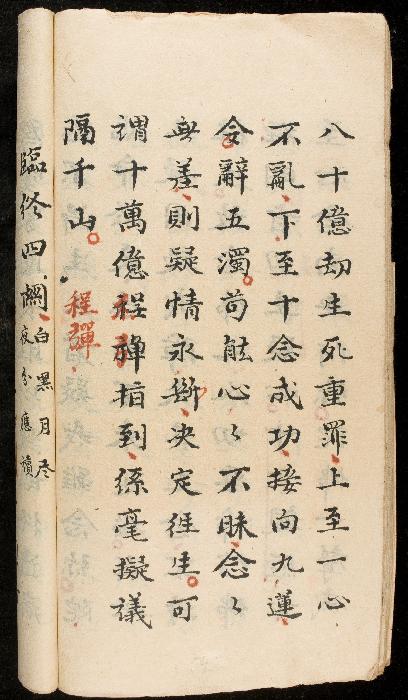 八十億劫生死重罪、上至一心
不亂、下至十念成功、接向九蓮、
令辭五濁。苟能心〻不昧、念〻
無差、則疑情永斷、決定徃生。可
謂十萬億程禅指到、絲毫擬議
隔千山。程彈
臨終四關、
白黑月尽
夜分應讀